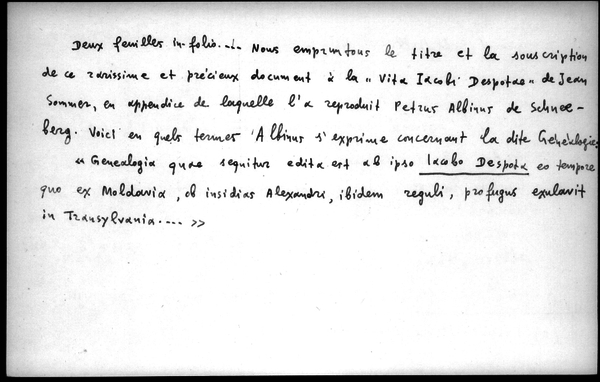 Deux feuilles in-folio.... Nous empruntons le titre et la souscription
de ce rarissime et précieux document à la „Vita Iacobi Despotae" de Jean
Sommer, en appendice de laquelle l'a reproduit Petrus Albinus de Schnee-
berg. Voici en quels termes Albinus s'exprime concernant la dite Généalogie:
« Genealogia quae sequitur edita est ab ipso Iacobo Despota eo tempore
quo ex Moldavia, ob insidias Alexandri, ibidem reguli, profugus exulavit
in Transylvania.... »